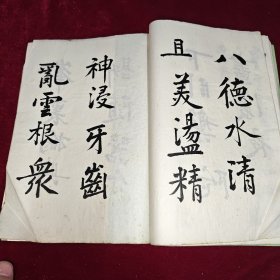 八德水清
且美盪精
神浸牙齒
亂雲根衆